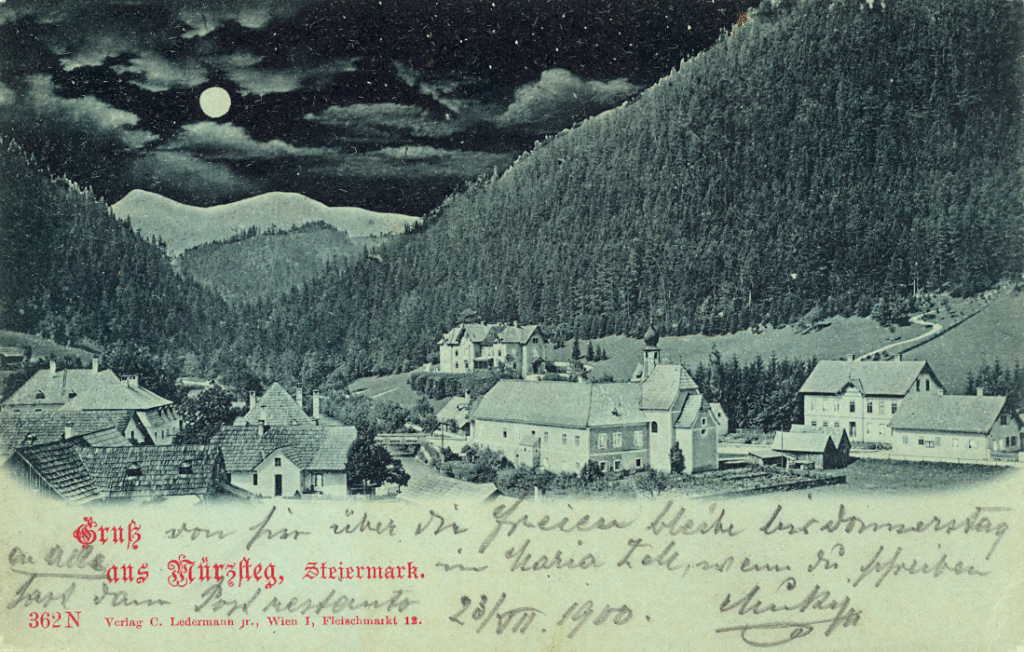 Gruß von hir über die Freien bleibe bis donnerstag
an Alle aus Mürzsteg, Steiermark. in Maria Zell, wenn du schreiben
dann Post restante 23/VII. 1900.
362 N Verlag C. Ledermann jr., Wien I, Fleischmarkt 12.